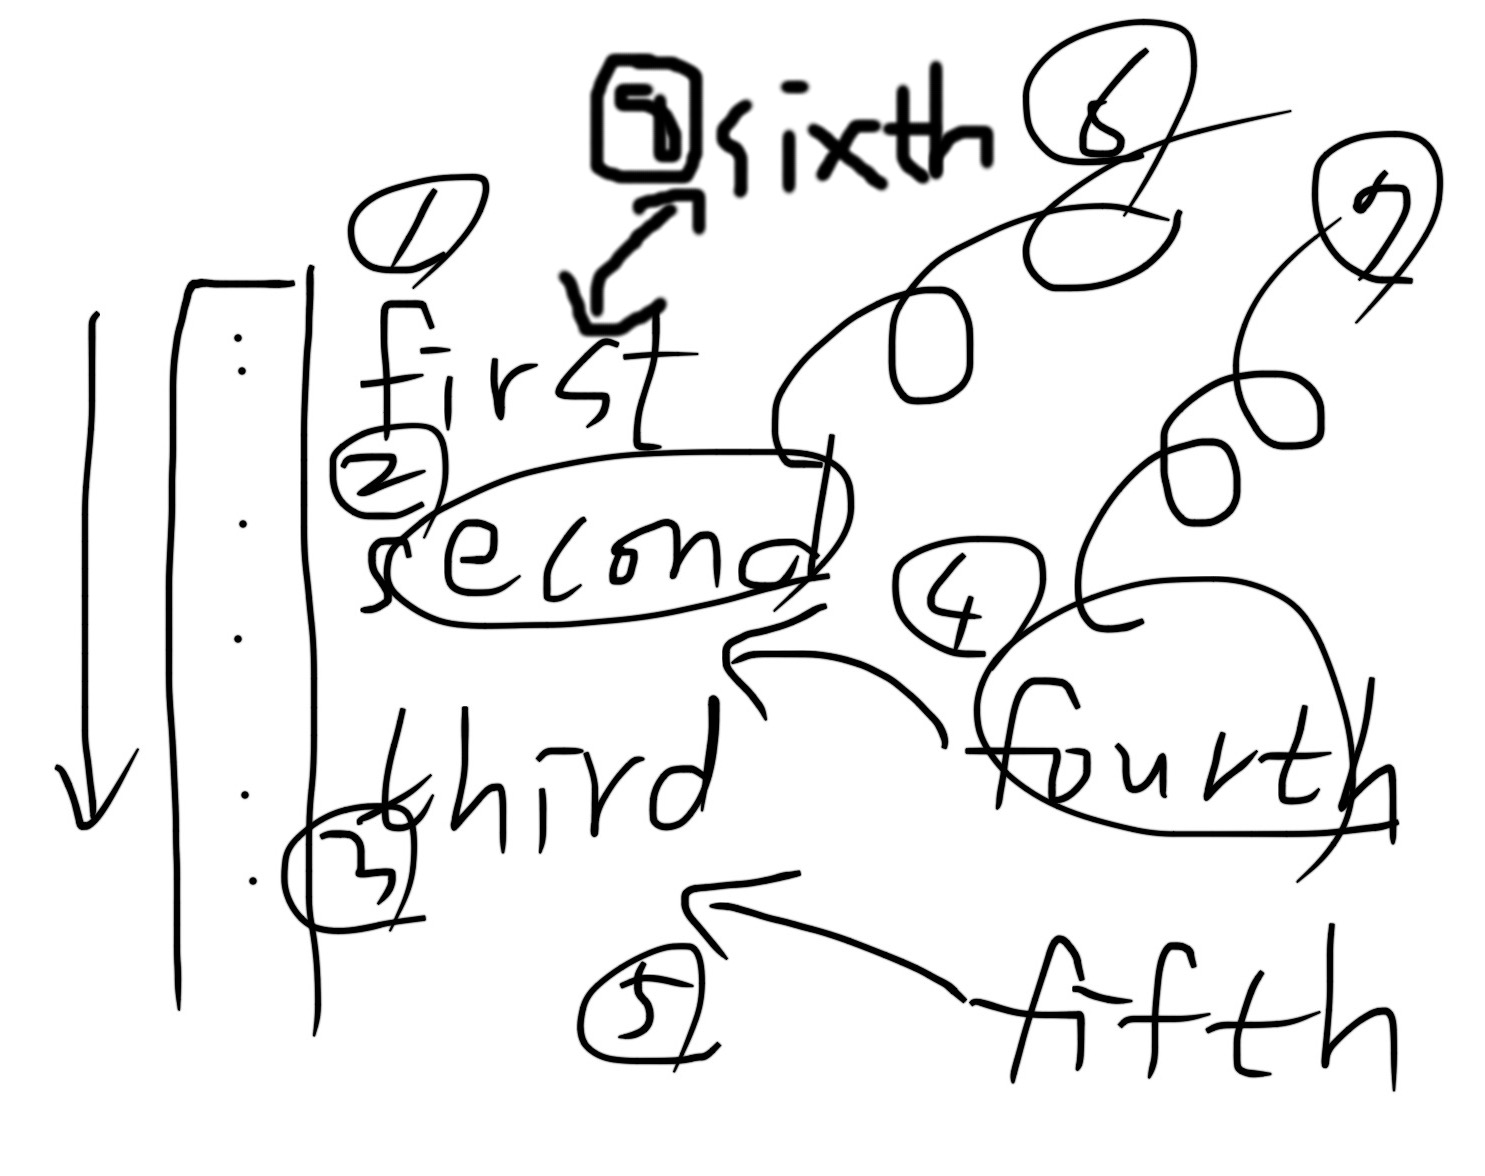 sixth 6
7
1
first
2
second
4
third fourth
3
5 fifth